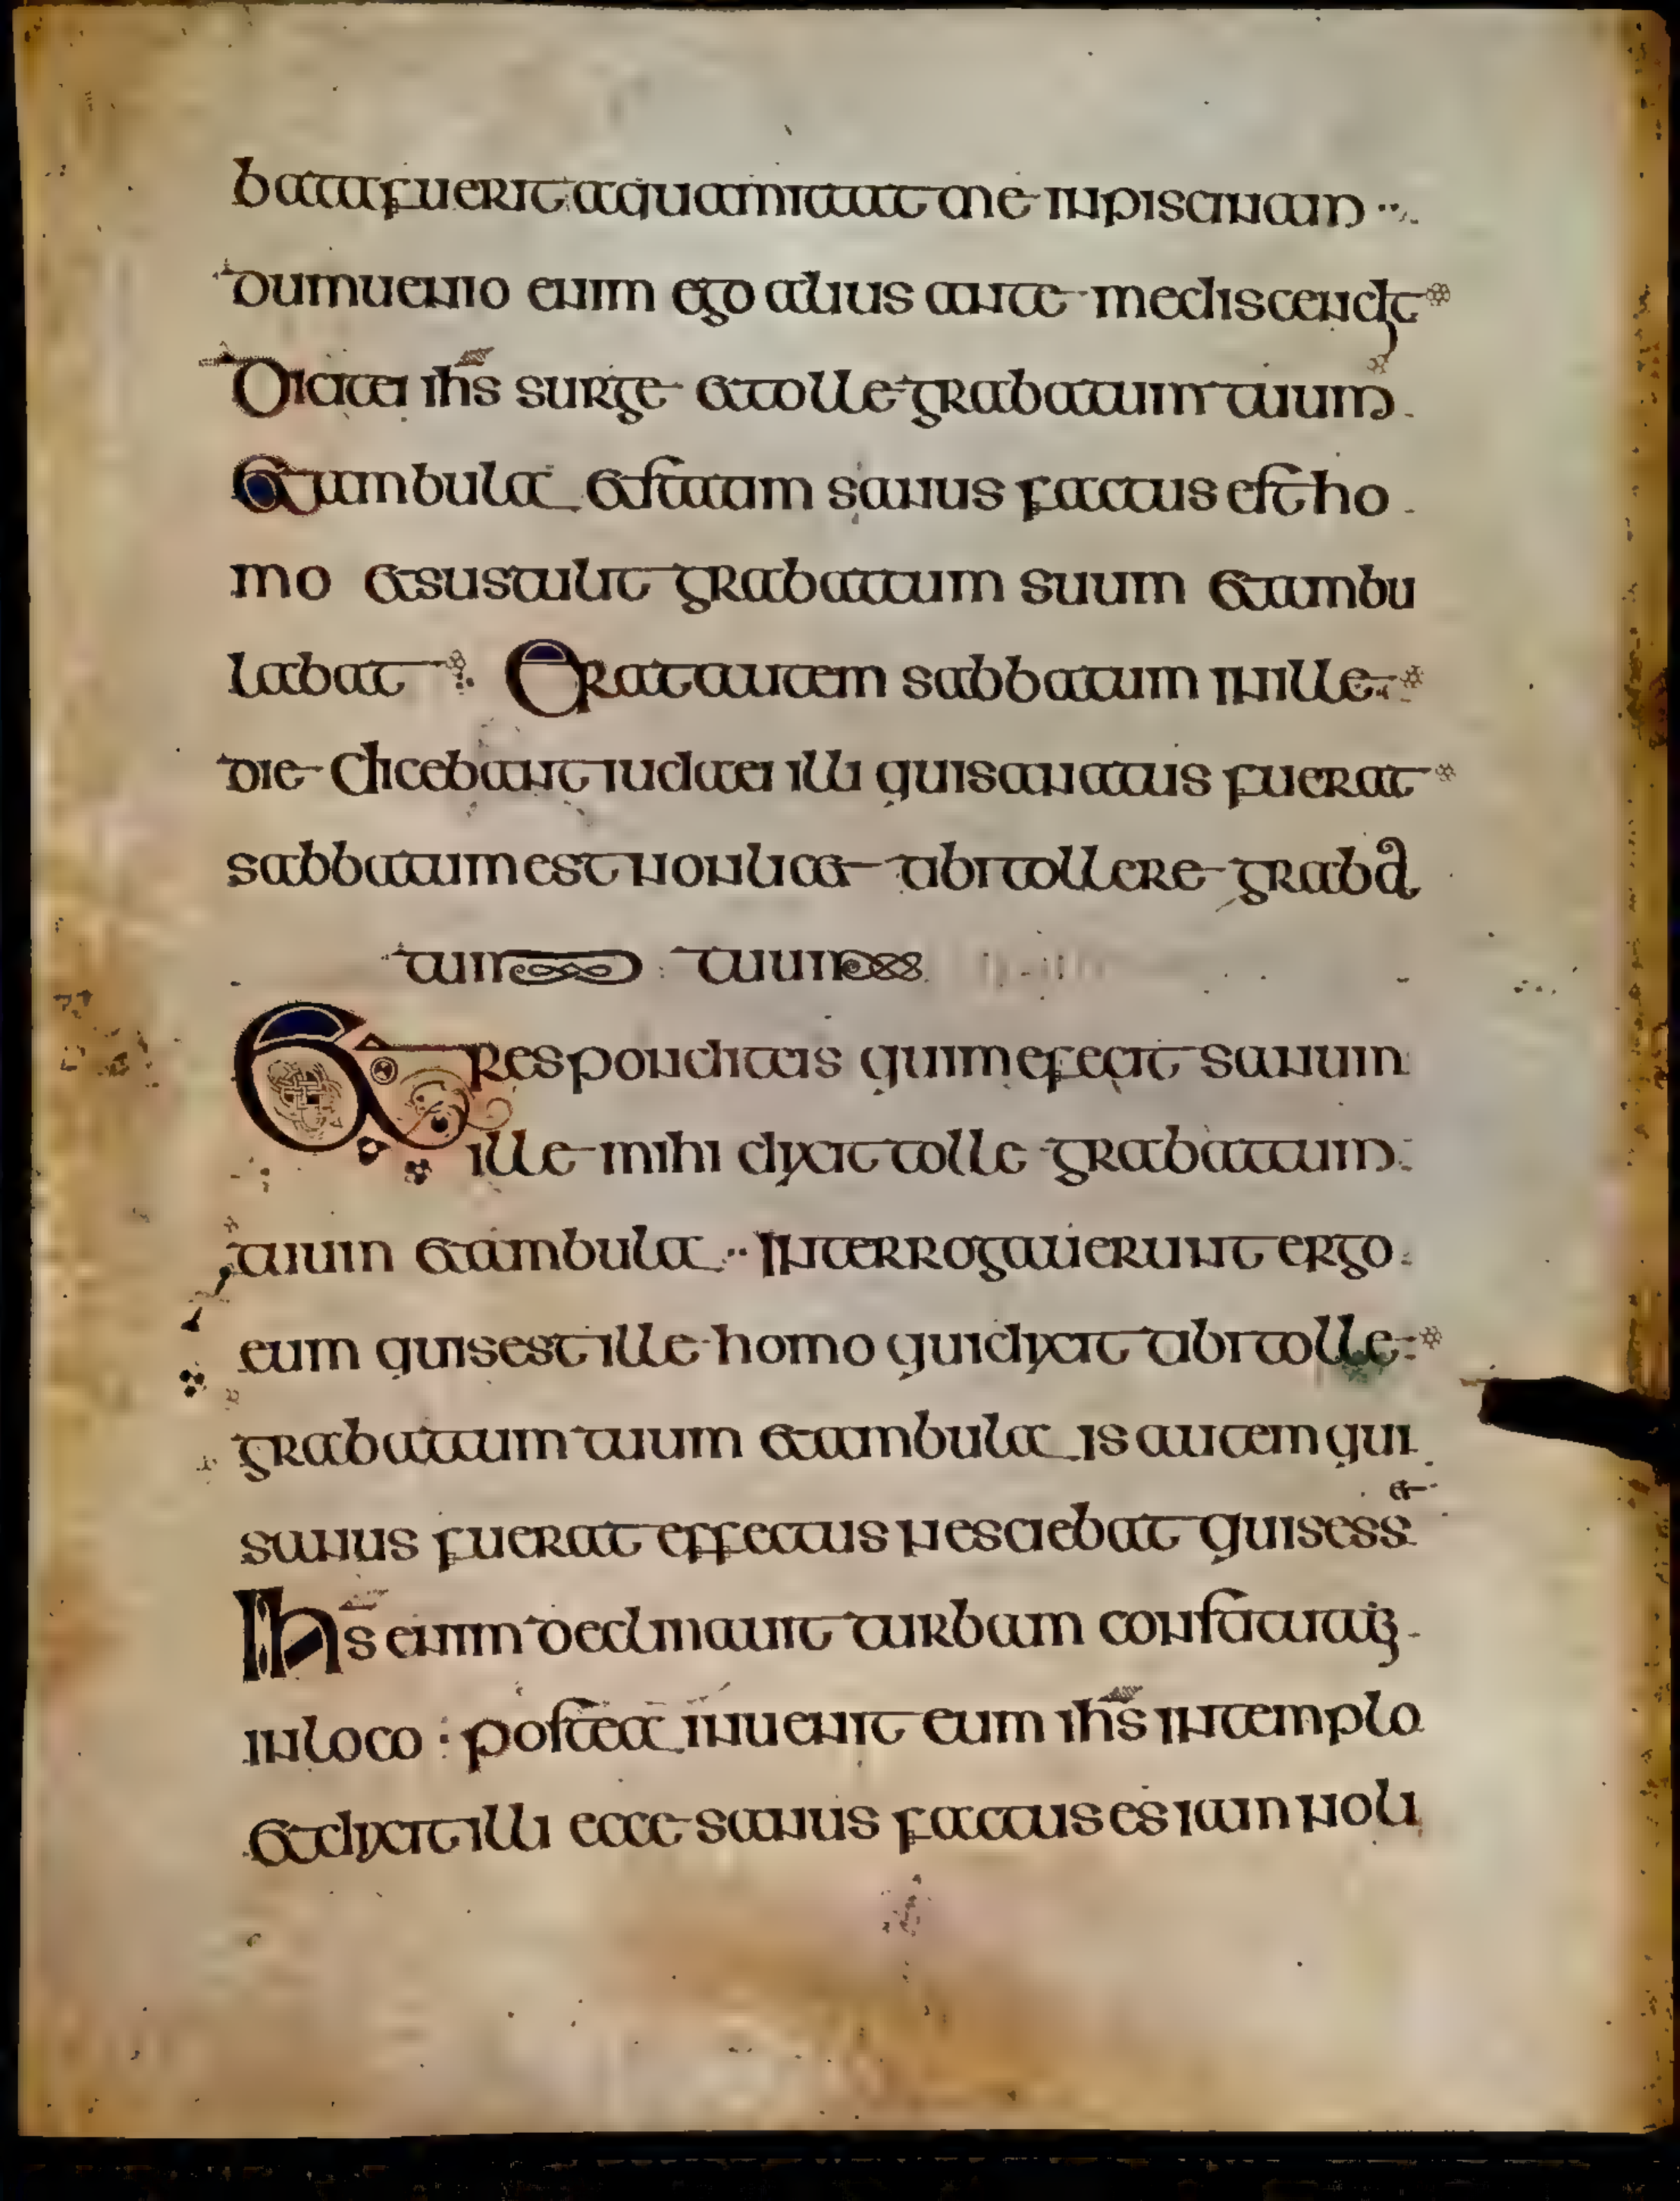 bata fuerit aquam mittat me in piscinam
dum uenio enim ego alius ante me discendit
Dicit ei ihs surge et tolle grabattum tuum
Et ambula et statim sanus factus est ho
mo et sustulit grabattum suum et ambu
labat Erat autem sabbatum in ille
die dicebant iudaei illi qui sanatus fuerat
sabbatum est non licet tibi tollere graba
tum tuum
Et respondit eis qui me fecit sanum
ille mihi dixit tolle grabattum
tuum et ambula Interrogauerunt ergo
eum quis est ille homo qui dixit tibi tolle
grabattum tuum et ambula is autem qui
sanus fuerat effectus nesciebat quis esset
Ihs enim declinauit turbam constitutaq;
in loco postea inuenit eum ihs in templo
et dixit illi ecce sanus factus es iam noli